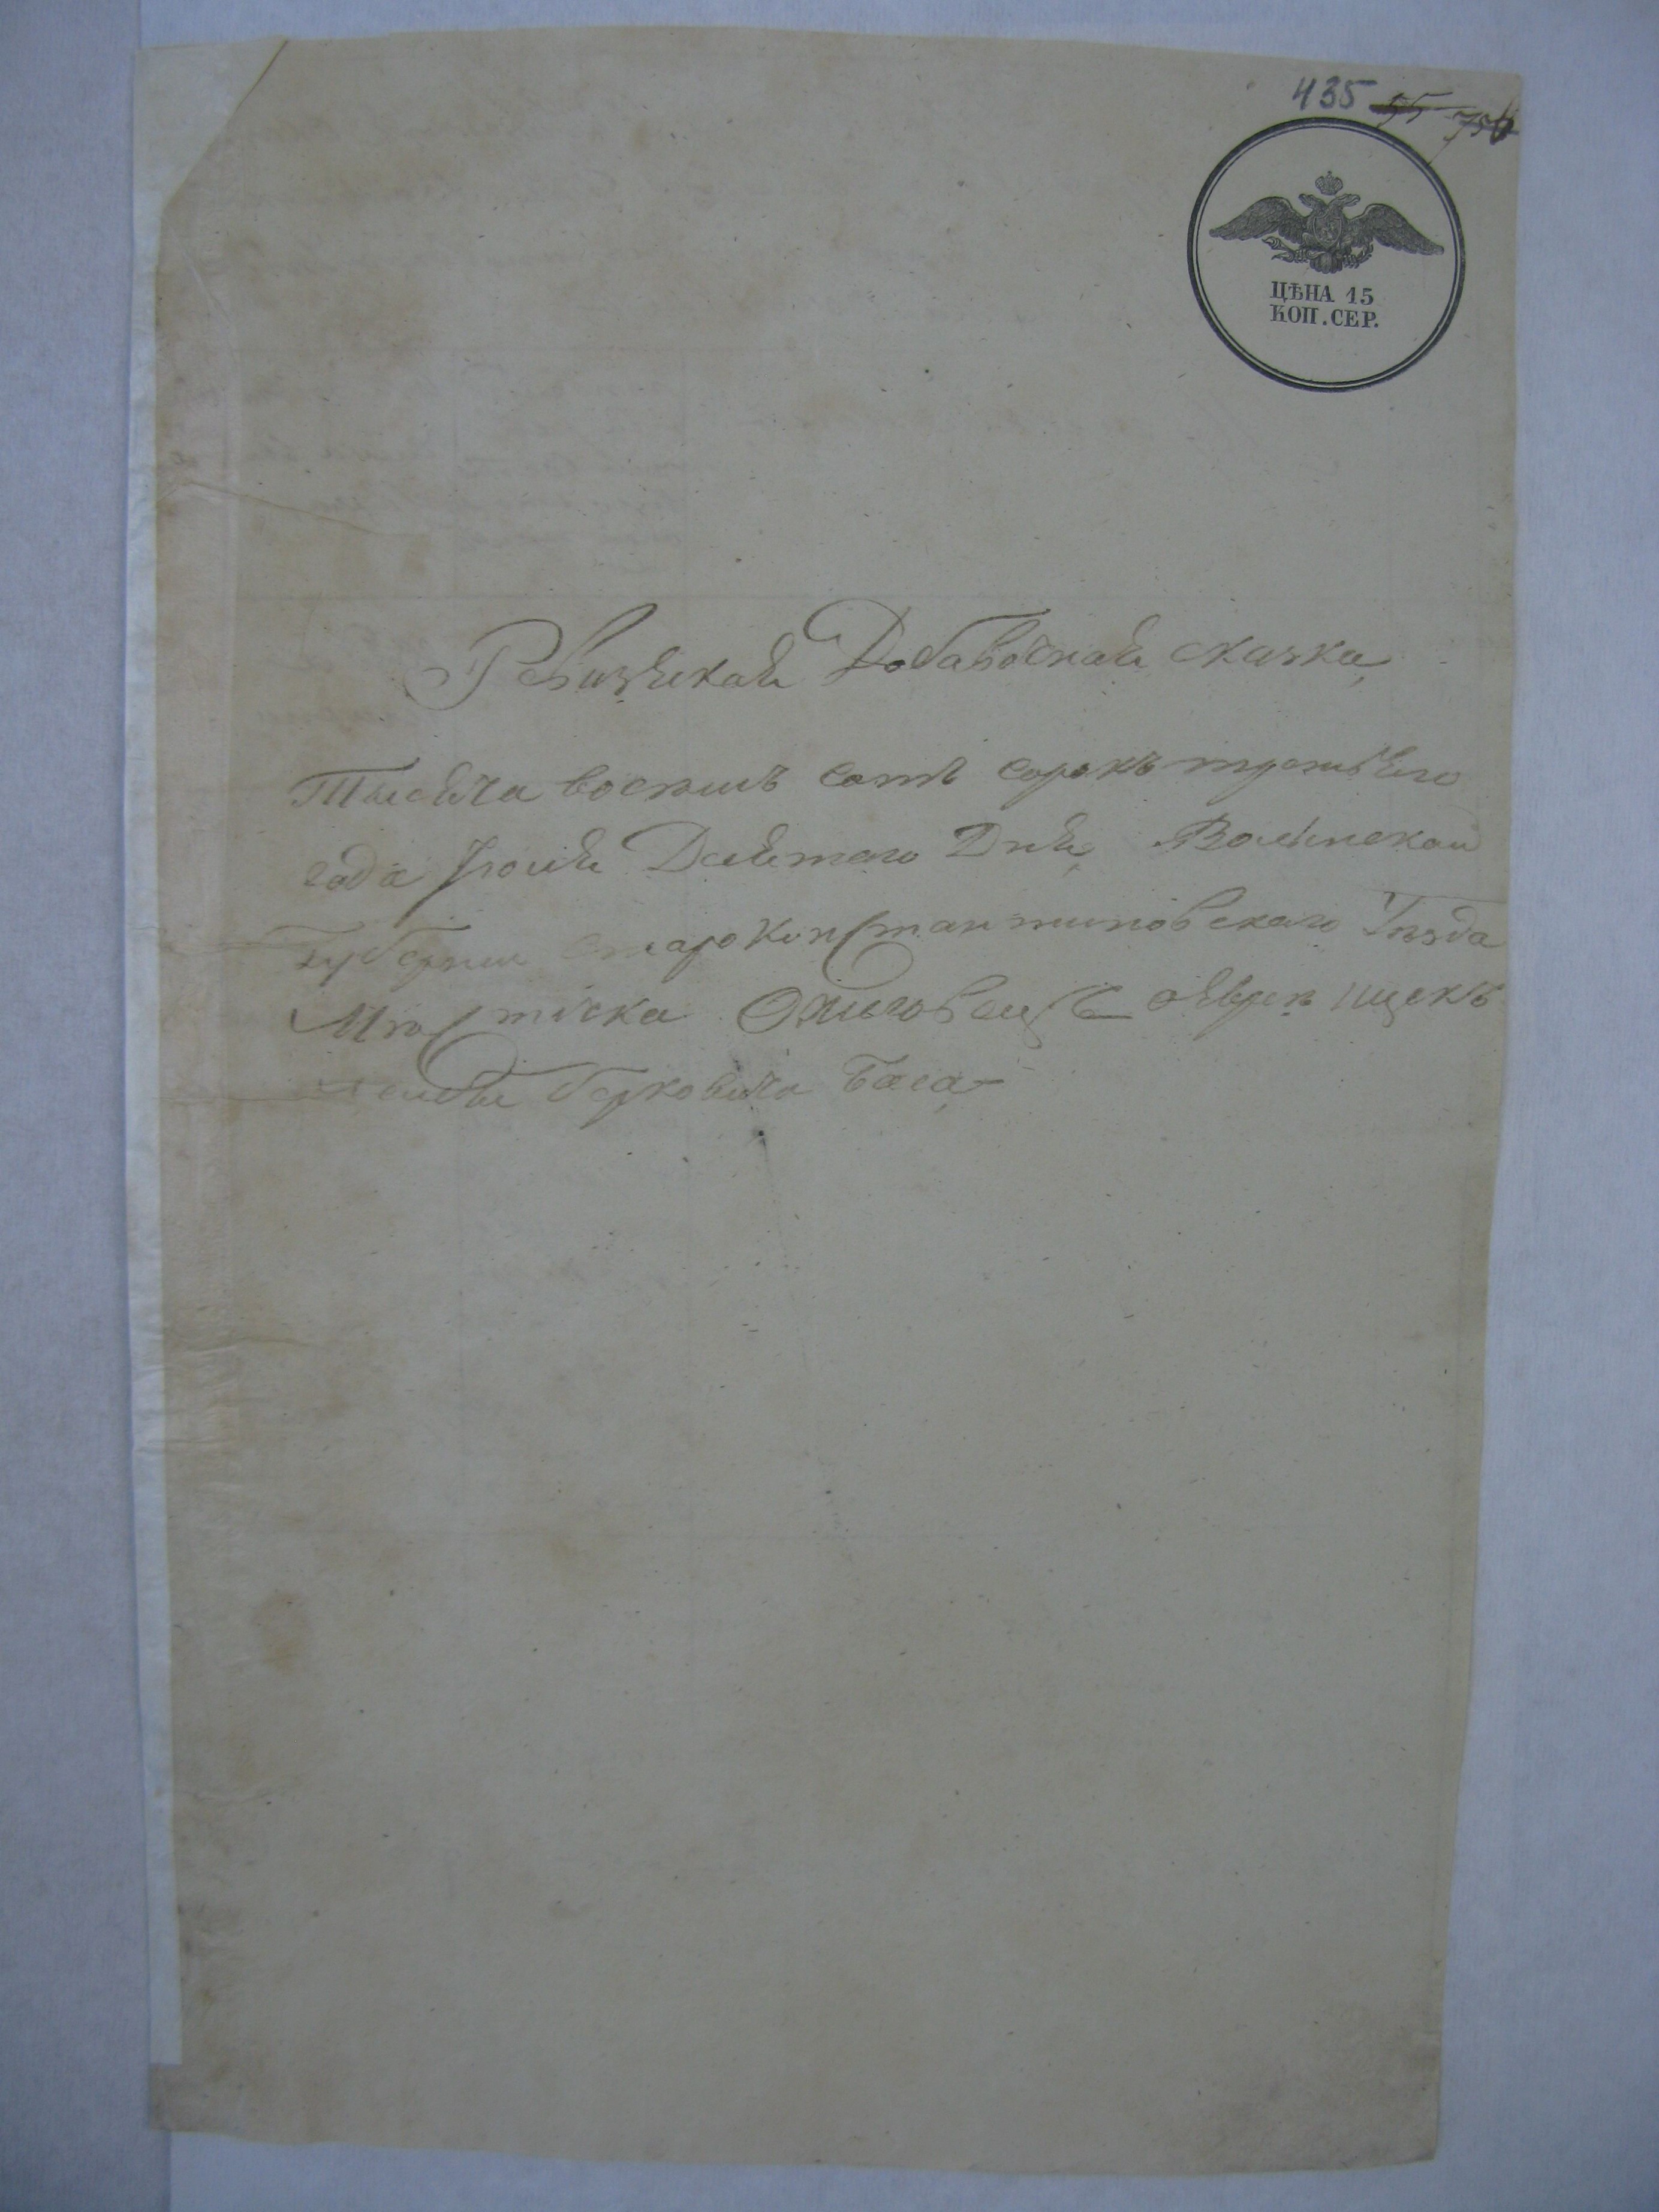 435 55 756
ЦѢНА 15
КОП. СЕР.
Ревизѣская Добавочная сказка,
Тысяча восемь сотъ сорокъ третьяго
года Іюля Девятаго Дня, Волынской
Губерніи Староконстантиновскаго Уѣзда
Мѣстичка Ожиговецъ о Евреѣ Ицекѣ
Берковича Баса